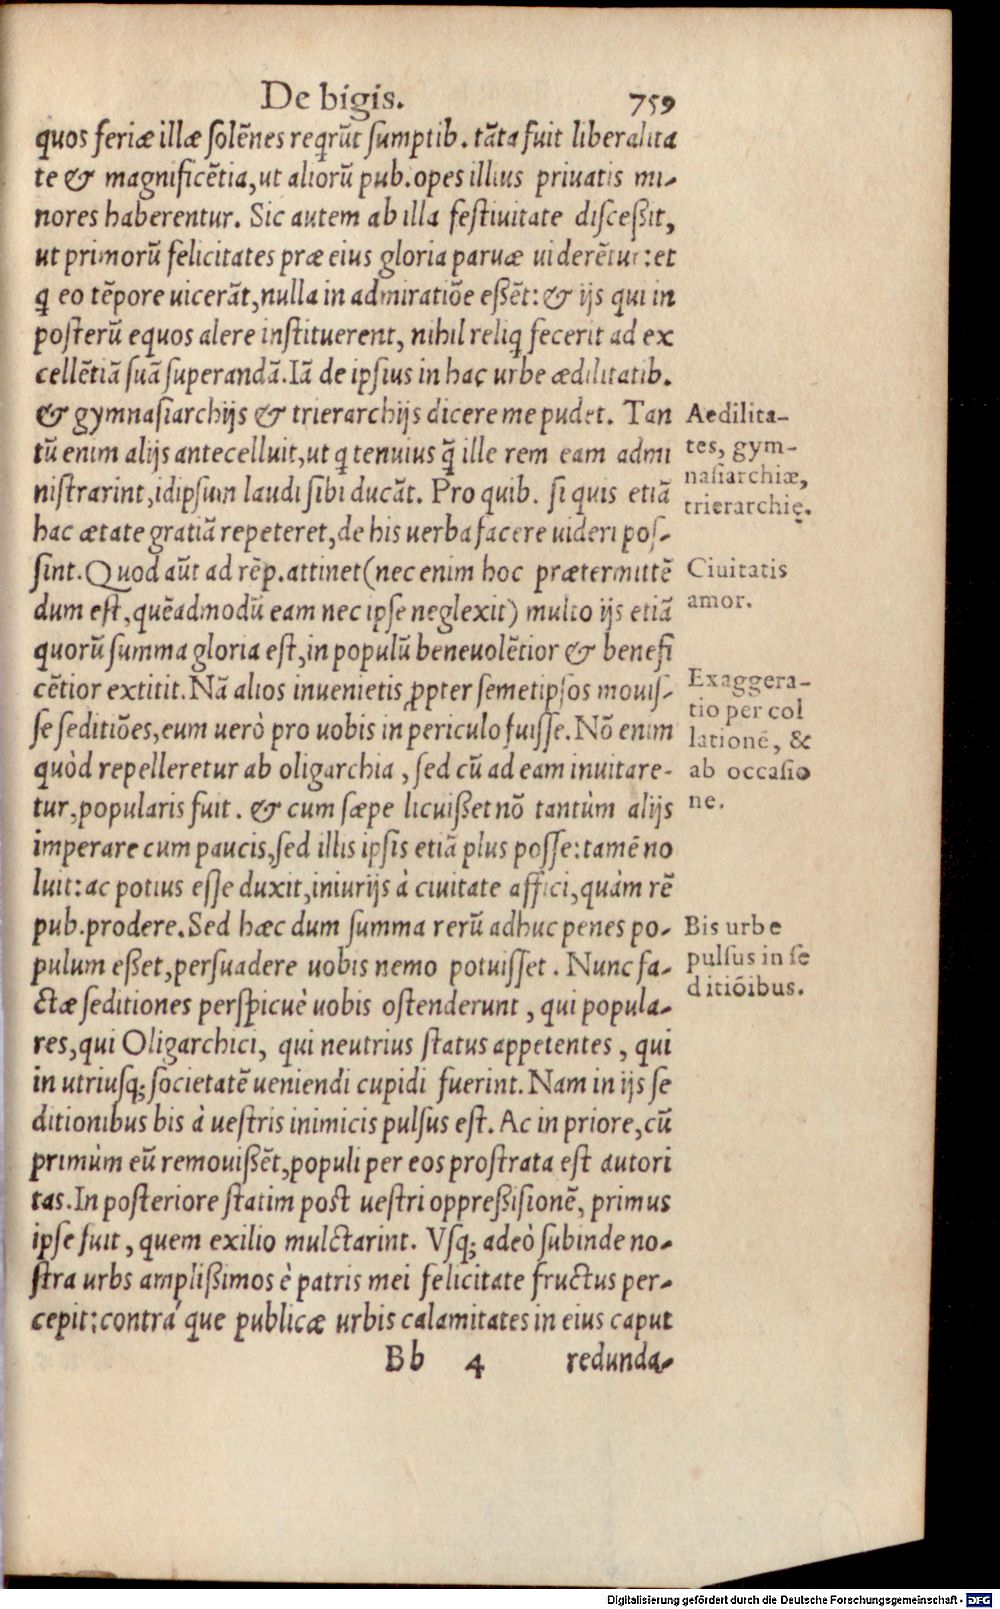 De bigis. 759
quos feriæ illæ solēnes reqrūt sumptib. tāta fuit liberalita
te & magnificētia, ut aliorū pub. opes illius priuatis mi-
nores haberentur. Sic autem ab illa festiuitate disceßit,
ut primorū felicitates præ eius gloria paruæ uiderētur: et
q̄ eo tēpore uicerāt, nulla in admiratiōe eßēt: & ijs qui in
posterū equos alere instituerent, nihil reliq̄ fecerit ad ex
cellētiā suā superandā. Iā de ipsius in hac urbe ædilitatib.
& gymnasiarchijs & trierarchijs dicere me pudet. Tan
tū enim alijs antecelluit, ut q̄ tenuius q̄ ille rem eam admi
nistrarint, id ipsum laudi sibi ducāt. Pro quib. si quis etiā
hac ætate gratiā repeteret, de his uerba facere uideri pos-
sint. Quod aūt ad rēp. attinet (nec enim hoc prætermittē
dum est, quēadmodū eam nec ipse neglexit) multo ijs etiā
quorū summa gloria est, in populū beneuolētior & benefi
cētior extitit. Nā alios inuenietis ꝓpter semetipsos mouis-
se seditiōes, eum uerò pro uobis in periculo fuisse. Nō enim
quòd repelleretur ab oligarchia, sed cū ad eam inuitare-
tur, popularis fuit. & cum sæpe licuißet nō tantùm alijs
imperare cum paucis, sed illis ipsis etiā plus posse: tamē no
luit: ac potius esse duxit, iniurijs à ciuitate affici, quàm rē
pub. prodere. Sed hæc dum summa rerū adhuc penes po-
pulum eßet, persuadere uobis nemo potuisset. Nunc fa-
ctæ seditiones perspicuè uobis ostenderunt, qui popula-
res, qui Oligarchici, qui neutrius status appetentes, qui
in utriusq; societatē ueniendi cupidi fuerint. Nam in ijs se
ditionibus bis à uestris inimicis pulsus est. Ac in priore, cū
primùm eū remouißēt, populi per eos prostrata est autori
tas. In posteriore statim post uestri oppreßisionē, primus
ipse fuit, quem exilio mulctarint. Vsq; adeò subinde no-
stra urbs amplißimos è patris mei felicitate fructus per-
cepit: contrá que publicæ urbis calamitates in eius caput
Bb 4 redunda-
Aedilita-
tes, gym-
nasiarchiæ,
trierarchię.
Ciuitatis
amor.
Exaggera-
tio per col
lationē, &
ab occasio
ne.
Bis urbe
pulsus in se
ditiōibus.
Digitalisierung gefördert durch die Deutsche Forschungsgemeinschaft - DFG